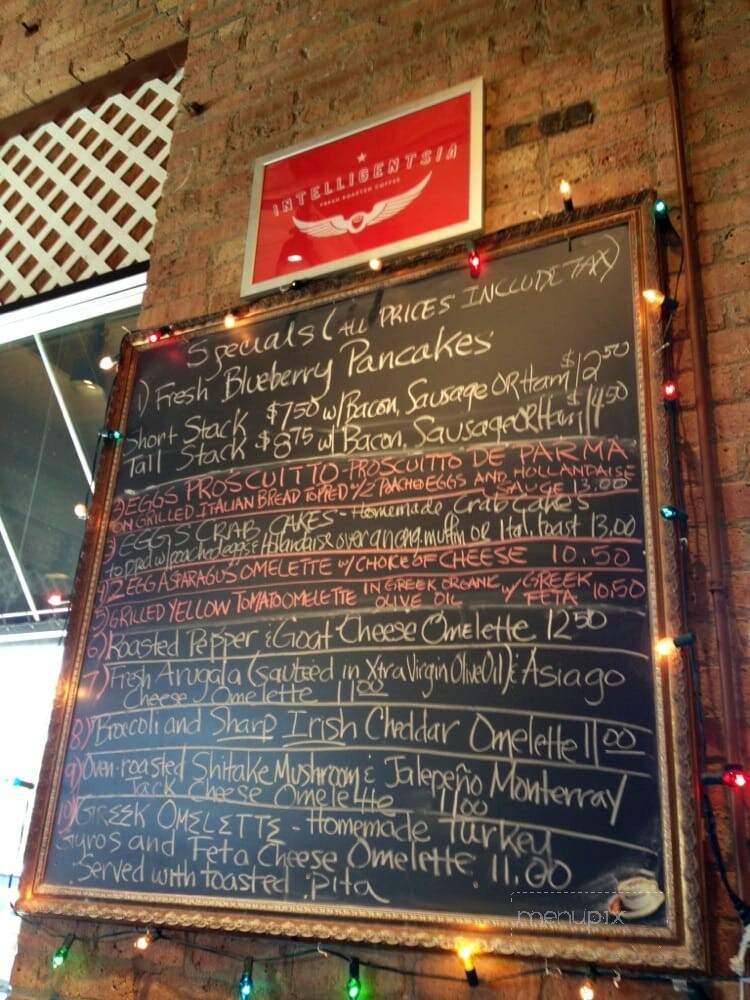 INTELLIGENTSIA
FRESH ROASTED COFFEE
Specials (ALL PRICES INCLUDE TAX)
1) Fresh Blueberry Pancakes
Short Stack $7.50 w/ Bacon, Sausage OR Ham $12.50
Tall Stack $8.75 w/ Bacon, Sausage OR Ham $14.50
2) EGGS PROSCUITTO - PROSCUITTO DE PARMA
ON GRILLED ITALIAN BREAD TOPPED w/ 2 POACHED EGGS AND HOLLANDAISE
SAUCE 13.00
3) EGGS CRAB CAKES - Homemade Crab Cakes
topped w/ poached eggs & Hollandaise over an eng. muffin or Ital. toast 13.00
4) 2 EGG ASPARAGUS OMELETTE w/ CHOICE OF CHEESE 10.50
5) GRILLED YELLOW TOMATO OMELETTE IN GREEK ORGANIC OLIVE OIL w/ GREEK FETA 10.50
6) Roasted Pepper & Goat Cheese Omelette 12.50
7) Fresh Arugala (sautéed in Xtra Virgin Olive Oil) & Asiago
Cheese Omelette 11.00
8) Broccoli and Sharp Irish Cheddar Omelette 11.00
9) Oven-roasted Shitake Mushroom & Jalepeño Monterray
Jack Cheese Omelette 11.00
10) GREEK OMELETTE - Homemade Turkey
Gyros and Feta Cheese Omelette 11.00
Served with toasted pita
menupix